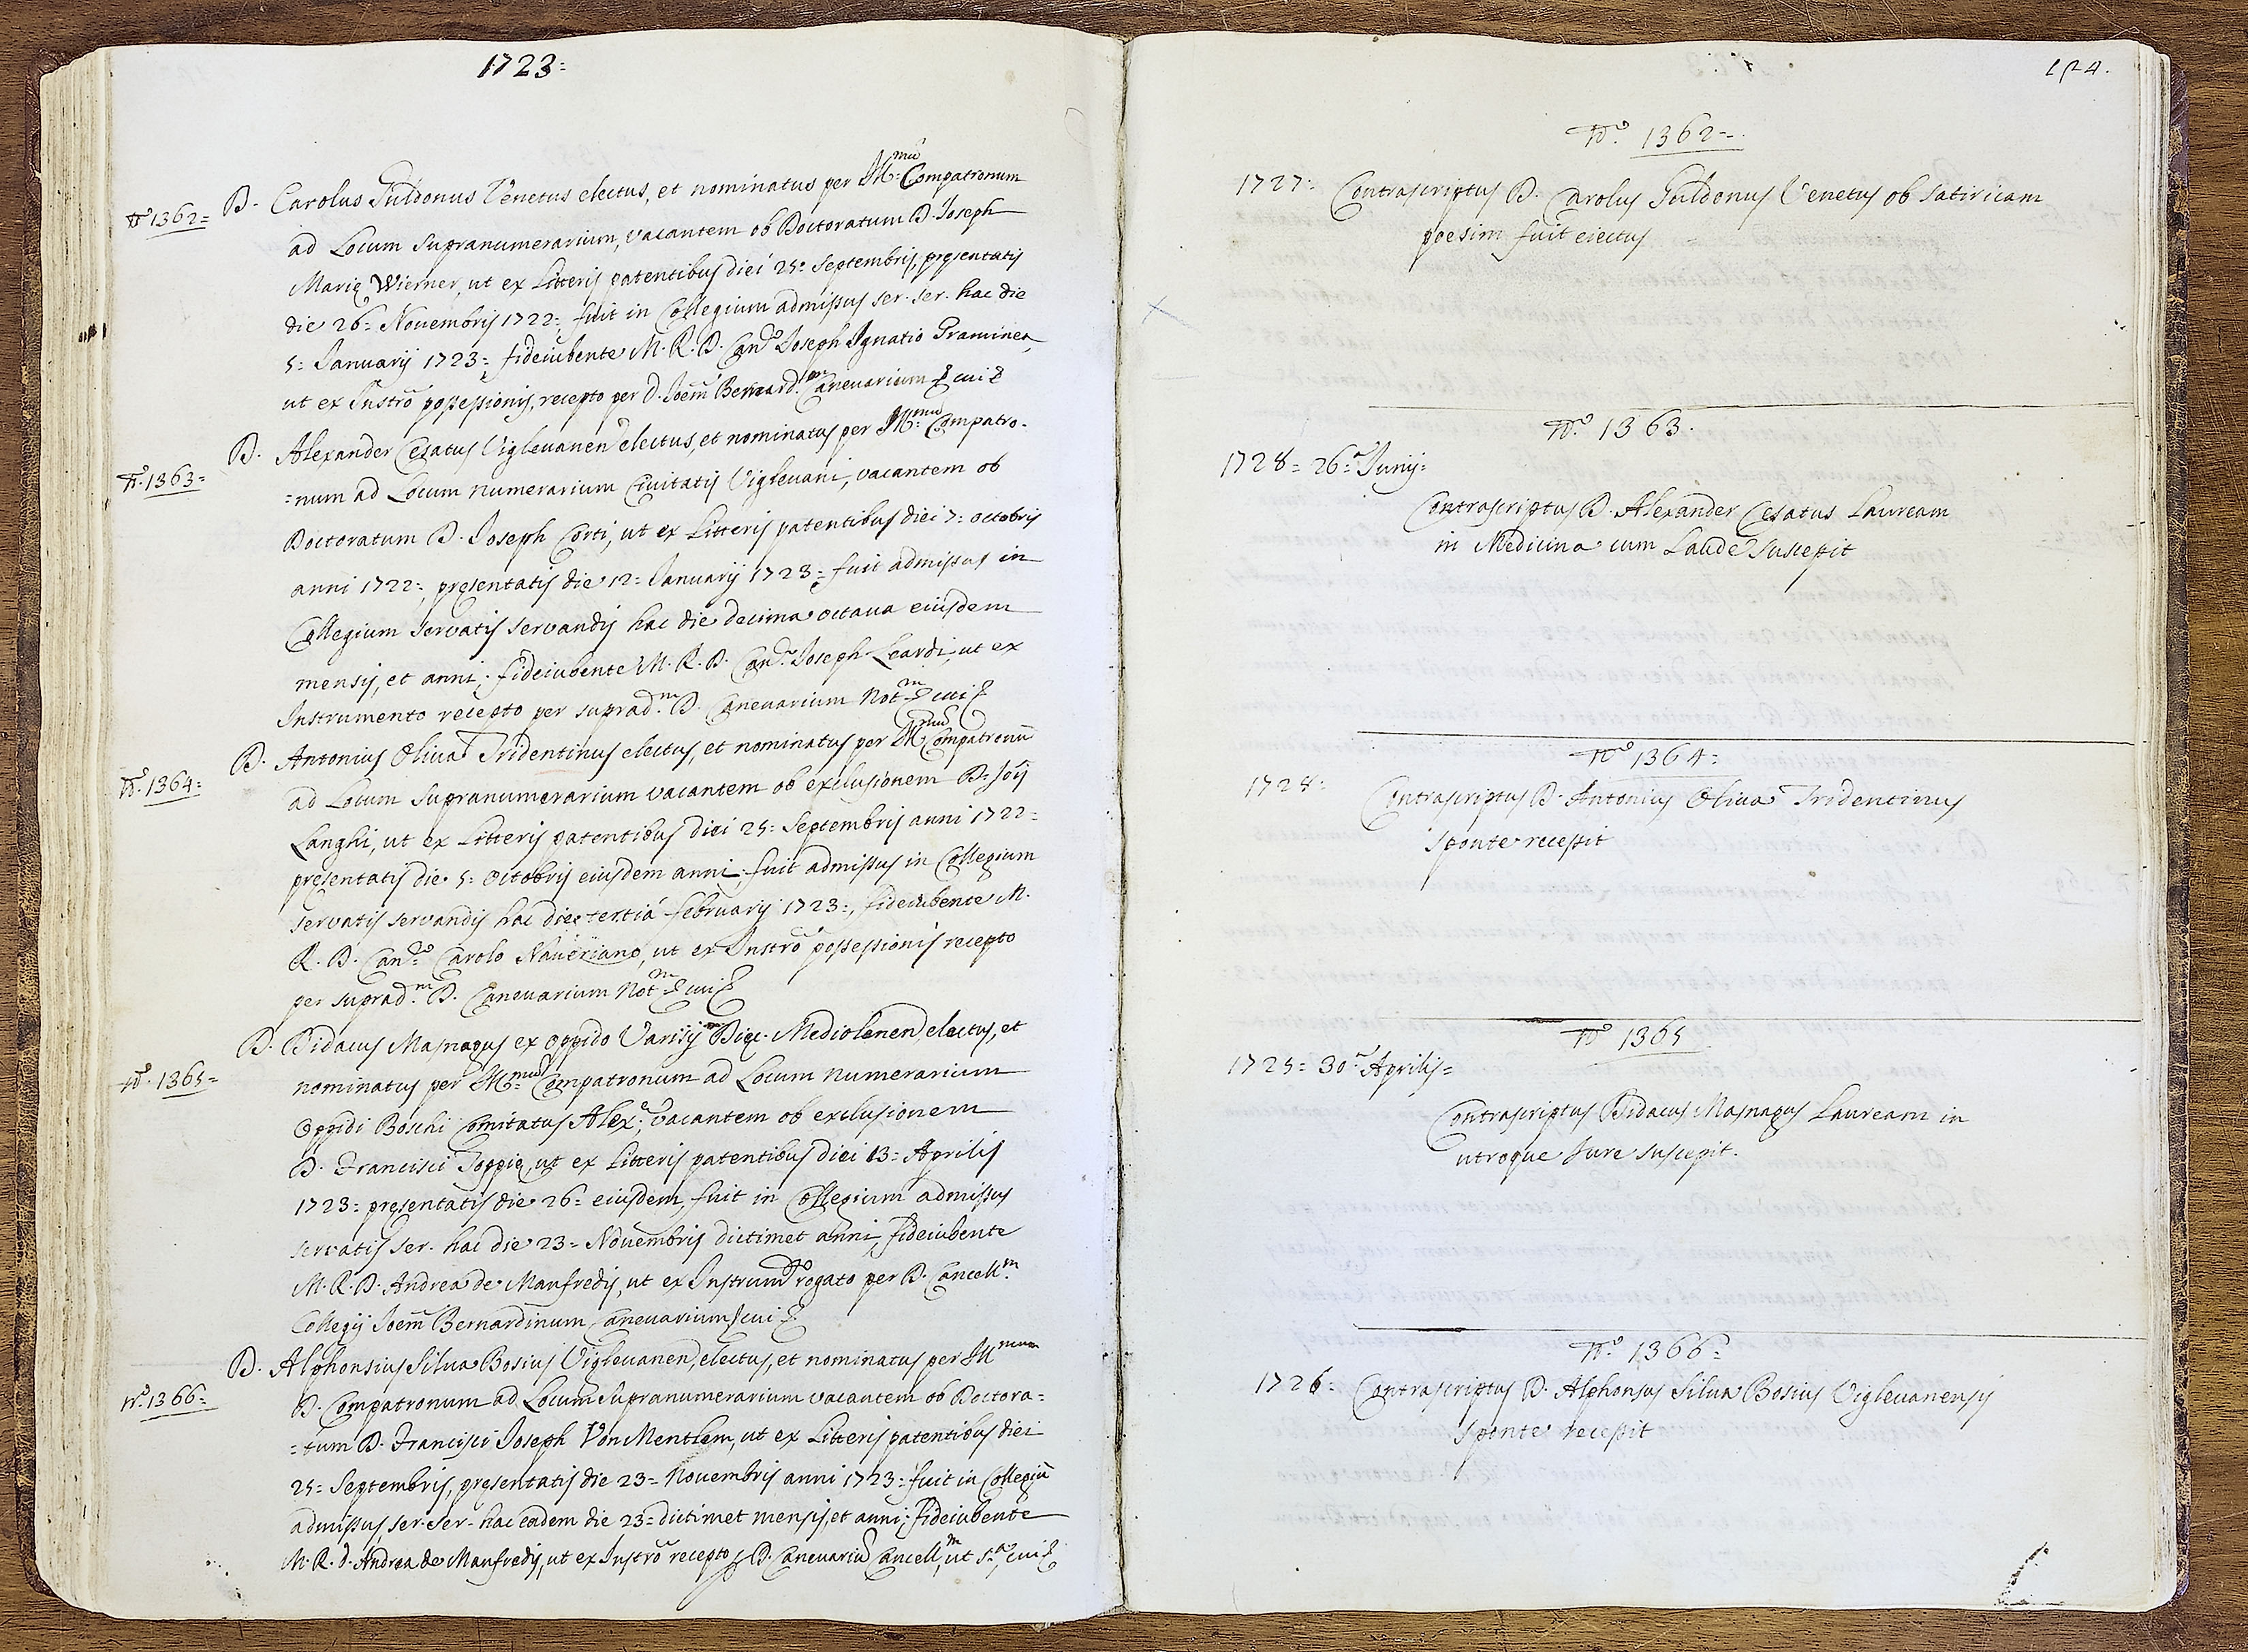 1723=
N.º 1362=
D. Carolus Guldonus Venetus electus, et nominatus per Ill.mũ Compatronum
ad Locum Supranumerarium, vacantem ob Doctoratum D. Joseph
Marię Wierner, ut ex Litterij patentibus diei 25= Septembrij, pręsentatij
die 26= Novembrij 1722= fuit in Collegium admissus ser. ser. hac die
5= Januarij 1723= fideiubente M. R. D. Can.co Joseph Ignatio Graminea
ut ex Instrõ possessionij, recepto per D. Joem̃ Bernard.m Canevarium
N.º 1363=
D. Alexander Cesatus Viglevanen electus, et nominatus per Ill.mũ Compatro-
=num ad Locum numerarium Civitatij Viglevani, vacantem ob
Doctoratum D. Joseph Corti, ut ex Litterij patentibus diei 7= octobrij
anni 1722=, pręsentatij die 12= Januarij 1723= fuit admissus in
Collegium servatij servandij hac die decima octava eiusdem
mensij, et anni; fideiubente M. R. D. Can.co Joseph Leardi, ut ex
Instrumento recepto per suprad.m D. Canevarium Not.m
N.º 1364=
D. Antonius Oliva Tridentinus electus, et nominatus per Ill.mũ Compatronũ
ad Locum Supranumerarium vacantem ob exclusionem D. Jõij
Langhi, ut ex Litterij patentibus diei 25= Septembrij anni 1722=
pręsentatij die 5= Octobrij eiusdem anni, fuit admissus in Collegium
servatij servandij hac die tertia februarij 1723=, fideiubente M.
R. D. Can.co Carolo Naveriano, ut ex Instrõ possessionis recepto
per suprad.m D. Canevarium Not.m
N.º 1365=
D. Didacus Masnagus ex oppido Varisij Dięc. Mediolanen, electus, et
nominatus per Ill.mũ Compatronum ad Locum numerarium
Oppidi Boschi Comitatus Alex.; vacantem ob exclusionem
D. Francisci Goppię, ut ex Litterij patentibus diei 13= Aprilis
1723= pręsentatij die 26= eiusdem, fuit in Collegium admissus
servatij ser. hac die 23= Novembrij dictimet anni, fideiubente
M. R. D. Andrea de Manfredij, ut ex Instrum.to rogato per D. Cancell.m
Collegij Joem̃ Bernardinum Canevarium
N.º 1366=
D. Alphonsius Silva Bosius Viglevanen, electus, et nominatus per Ill.mum
D. Compatronum ad Locum Supranumerarium vacantem ob Doctora=
=tum D. Francisci Joseph Von Mentlem, ut ex Litterij patentibus diei
25= Septembrij, pręsentatij die 23= Novembrij anni 1723= fuit in Collegiũ
admissus, ser. ser. hac eadem die 23= dictimet mensij, et anni; fideiubente
M. R. d. Andrea de Manfredij, ut ex Instrõ recepto p D. Canevariũ Cancell.m, ut s.a
124.
N.º 1362=
1727= Contrascriptus D. Carolus Guldonus Venetus ob Satiricam
poesim fuit eiectus
N.º 1363.
1728= 26.a Junij=
Contrascriptus D. Alexander Cesatus Lauream
in Medicina cum Laude suscepit
N.º 1364=
1728= Contrascriptus D. Antonius Oliva Tridentinus
sponte recessit
N.º 1365
1725= 30.a Aprilis=
Contrascriptus Didacus Masnagus Lauream in
utroque Jure suscepit.
N.º 1366=
1726= Contrascriptus D. Alphonsus Silva Bosius Viglevanensis
sponte recessit